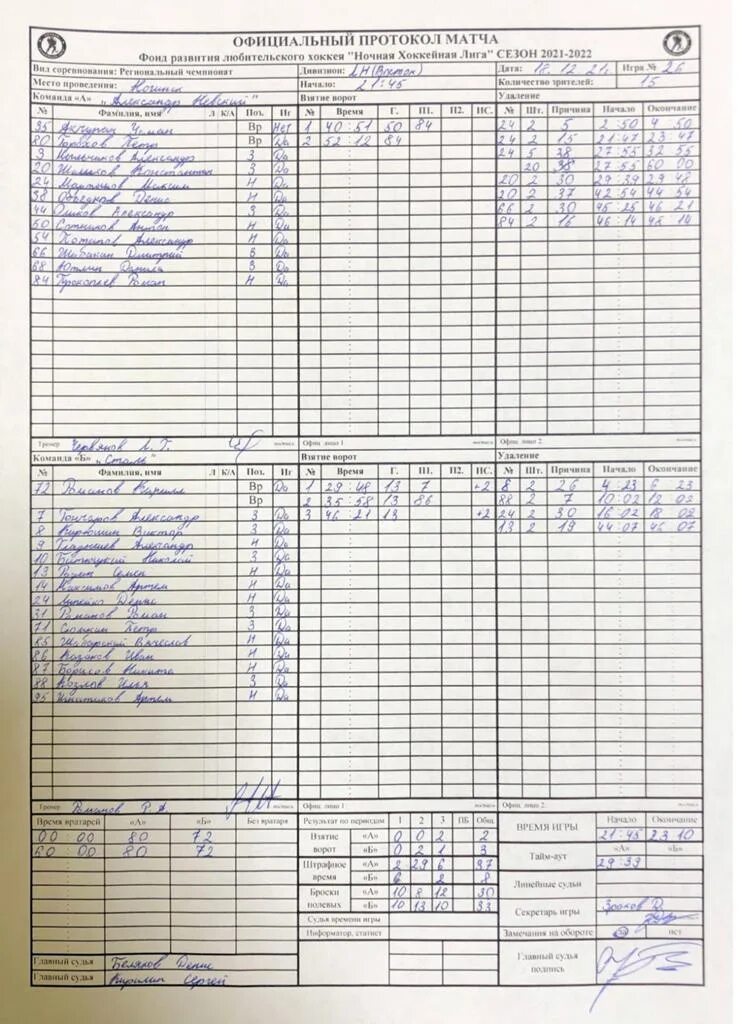 ОФИЦИАЛЬНЫЙ ПРОТОКОЛ МАТЧА
Фонд развития любительского хоккея "Ночная Хоккейная Лига" СЕЗОН 2021-2022
Вид соревнования: Региональный чемпионат Дивизион: ЛН (Восток) Дата: 18.12.21г. Игра № 26
Место проведения: Ногинск Начало: 21:45 Количество зрителей: 15
Команда «А» „Александр Невский" Взятие ворот Удаление
№ Фамилия, имя Л К/А Поз. Иг № Время Г. П1. П2. ИС. № Шт. Причина Начало Окончание
35 Вр Нет 1 40:51 50 84 24 2 5 2:50 4:50
80 Горохов Петр Вр Да 2 52:12 84 24 2 15 21:47 23:47
9 Александр З Да 24 5 38 27:55 32:55
20 Константин З Да 20 38 27:55 60:00
24 Мартынов Максим Н Да 20 2 30 29:39 29:48
38 Денис Н Да 20 2 37 42:54 44:54
44 Александр З Да 66 2 30 45:25 46:21
50 Сотников Антон Н Да 84 2 16 46:14 48:14
54 Потапов Александр Н Да
66 Дмитрий З Да
68 Данила З Да
84 Прокопьев Роман Н Да
Тренер Червяков А. Г. подпись Офиц. лицо 1 подпись Офиц. лицо 2 подпись
Команда «Б» „Сталь" Взятие ворот Удаление
№ Фамилия, имя Л К/А Поз. Иг № Время Г. П1. П2. ИС. № Шт. Причина Начало Окончание
72 Романов Кирилл Вр Да 1 29:48 13 7 +2 8 2 26 4:23 6:23
Вр 2 35:58 13 86 88 2 7 10:02 12:02
7 Гончаров Александр З Да 3 46:21 13 +2 24 2 30 16:02 18:02
8 Кирюшин Виктор З Да 13 2 19 44:07 46:07
9 Гладышев Александр Н Да
10 Николай З Да
13 Семен Н Да
14 Максимов Артем Н Да
24 Денис Н Да
31 Романов Роман З Да
71 Петр З Да
85 Шаварский Вячеслав Н Да
86 Казаков Иван Н Да
87 Борисов Никита Н Да
88 Козлов Илья З Да
95 Игнатиков Артем Н Да
Тренер Романов Р. А. подпись Офиц. лицо 1 подпись Офиц. лицо 2 подпись
Время вратарей «А» «Б» Без вратаря Результат по периодам 1 2 3 ПБ Общ ВРЕМЯ ИГРЫ Начало Окончание
00:00 80 72 Взятие ворот «А» 0 0 2 2 21:45 23:10
60:00 80 72 «Б» 0 2 1 3 Тайм-аут «А» «Б»
Штрафное время «А» 2 29 6 37 29:39
«Б» 6 2 8 Линейные судьи
Броски полевых «А» 10 8 12 30
«Б» 10 13 10 33 Секретарь игры
Судья времени игры
Информатор, статист Замечания на обороте да нет
Главный судья Беляков Денис Главный судья подпись
Главный судья Кирилин Сергей